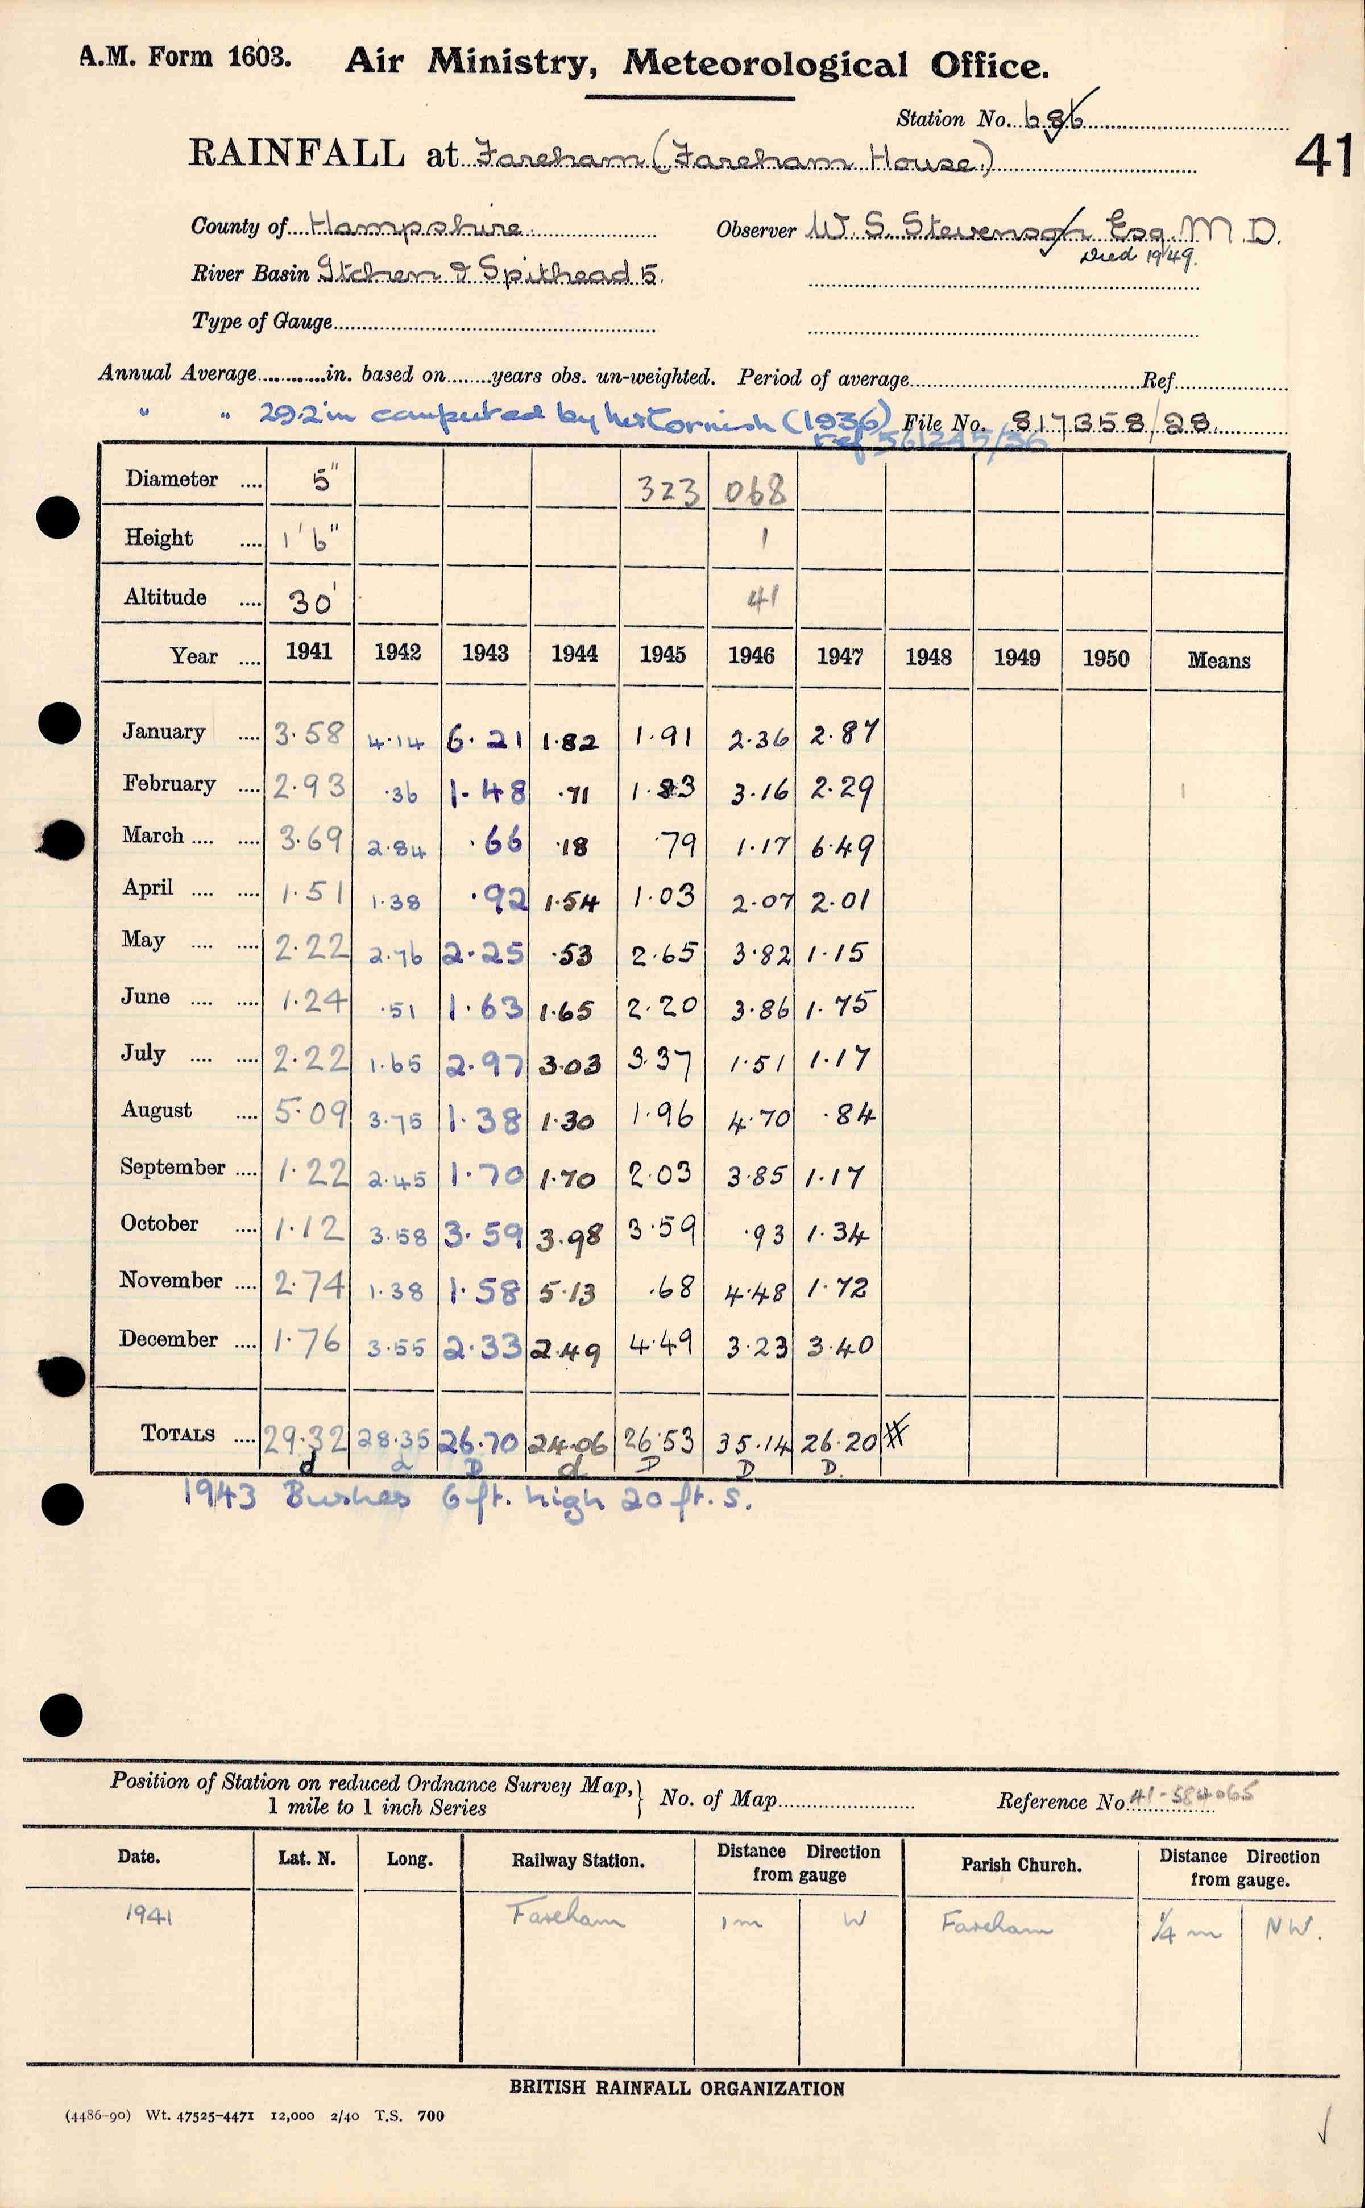 A.M. Form 1603. Air Ministry, Meteorological Office.
Station No. 686
RAINFALL at Fareham (Fareham House.) 41
County of Hampshire Observer W. S. Stevenson Esq. M.D.
Died 1949.
River Basin Itchen & Spithead 5.
Type of Gauge
Annual Average............in. based on........years obs. un-weighted. Period of average..........Ref..........
" " 29.2in computed by Cornish (1936) File No. 817358/28
ref 561245/36
Diameter .... 5" 323 068
Height .... 1'6" 1
Altitude .... 30' 41
Year .... 1941 1942 1943 1944 1945 1946 1947 1948 1949 1950 Means
January .... 3.58 4.14 6.21 1.82 1.91 2.36 2.87
February .... 2.93 .36 1.48 .71 1.83 3.16 2.29
March .... .... 3.69 2.84 .66 .18 .79 1.17 6.49
April .... .... 1.51 1.38 .92 1.54 1.03 2.07 2.01
May .... .... 2.22 2.76 2.25 .53 2.65 3.82 1.15
June .... .... 1.24 .51 1.63 1.65 2.20 3.86 1.75
July .... .... 2.22 1.65 2.97 3.03 3.37 1.51 1.17
August .... 5.09 3.75 1.38 1.30 1.96 4.70 .84
September .... 1.22 2.45 1.70 1.70 2.03 3.85 1.17
October .... 1.12 3.58 3.59 3.98 3.59 .93 1.34
November .... 2.74 1.38 1.58 5.13 .68 4.48 1.72
December .... 1.76 3.55 2.33 2.49 4.49 3.23 3.40
TOTALS .... 29.32 28.35 26.70 24.06 26.53 35.14 26.20 #
d d D d D D D.
1943 Bushes 6 ft. high 20 ft. S.
Position of Station on reduced Ordnance Survey Map,} No. of Map.......... Reference No. 41-584065
1 mile to 1 inch Series
Date. Lat. N. Long. Railway Station. Distance Direction from gauge Parish Church. Distance Direction from gauge.
1941 Fareham 1m W Fareham ¼ m NW.
BRITISH RAINFALL ORGANIZATION
(4486-90) Wt. 47525-4471 12,000 2/40 T.S. 700